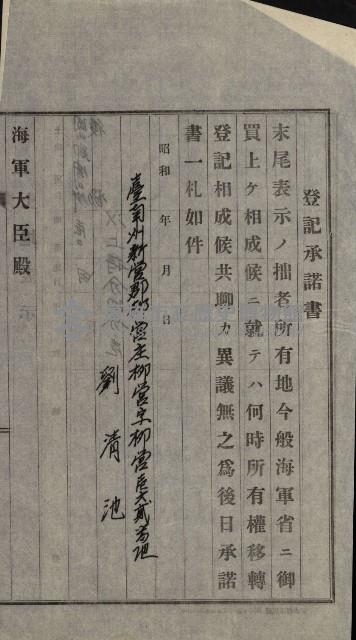 登記承諾書
末尾表示ノ拙者所有地今般海軍省ニ御
買上ケ相成候ニ就テハ何時所有權移轉
登記相成候共聊カ異議無之爲後日承諾
書一札如件
昭和 年 月 日
臺南州新營郡柳營庄柳營字柳營 貳番地
劉清池
海軍大臣殿